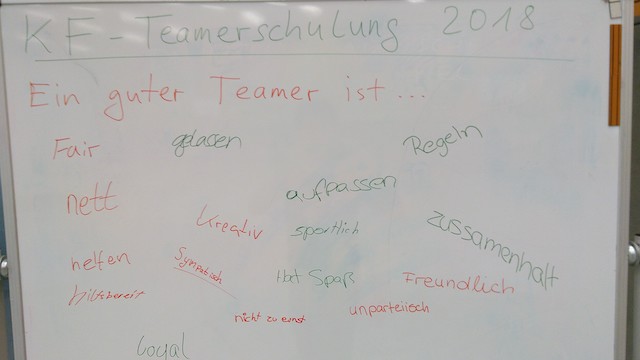 KF-Teamerschulung 2018
Ein guter Teamer ist...
Fair
gelassen
Regeln
nett
aufpassen
Kreativ
sportlich
Zussamenhalt
helfen
Sympatisch
Hat Spaß
Freundlich
hilfsbereit
nicht zu ernst
unparteiisch
loyal